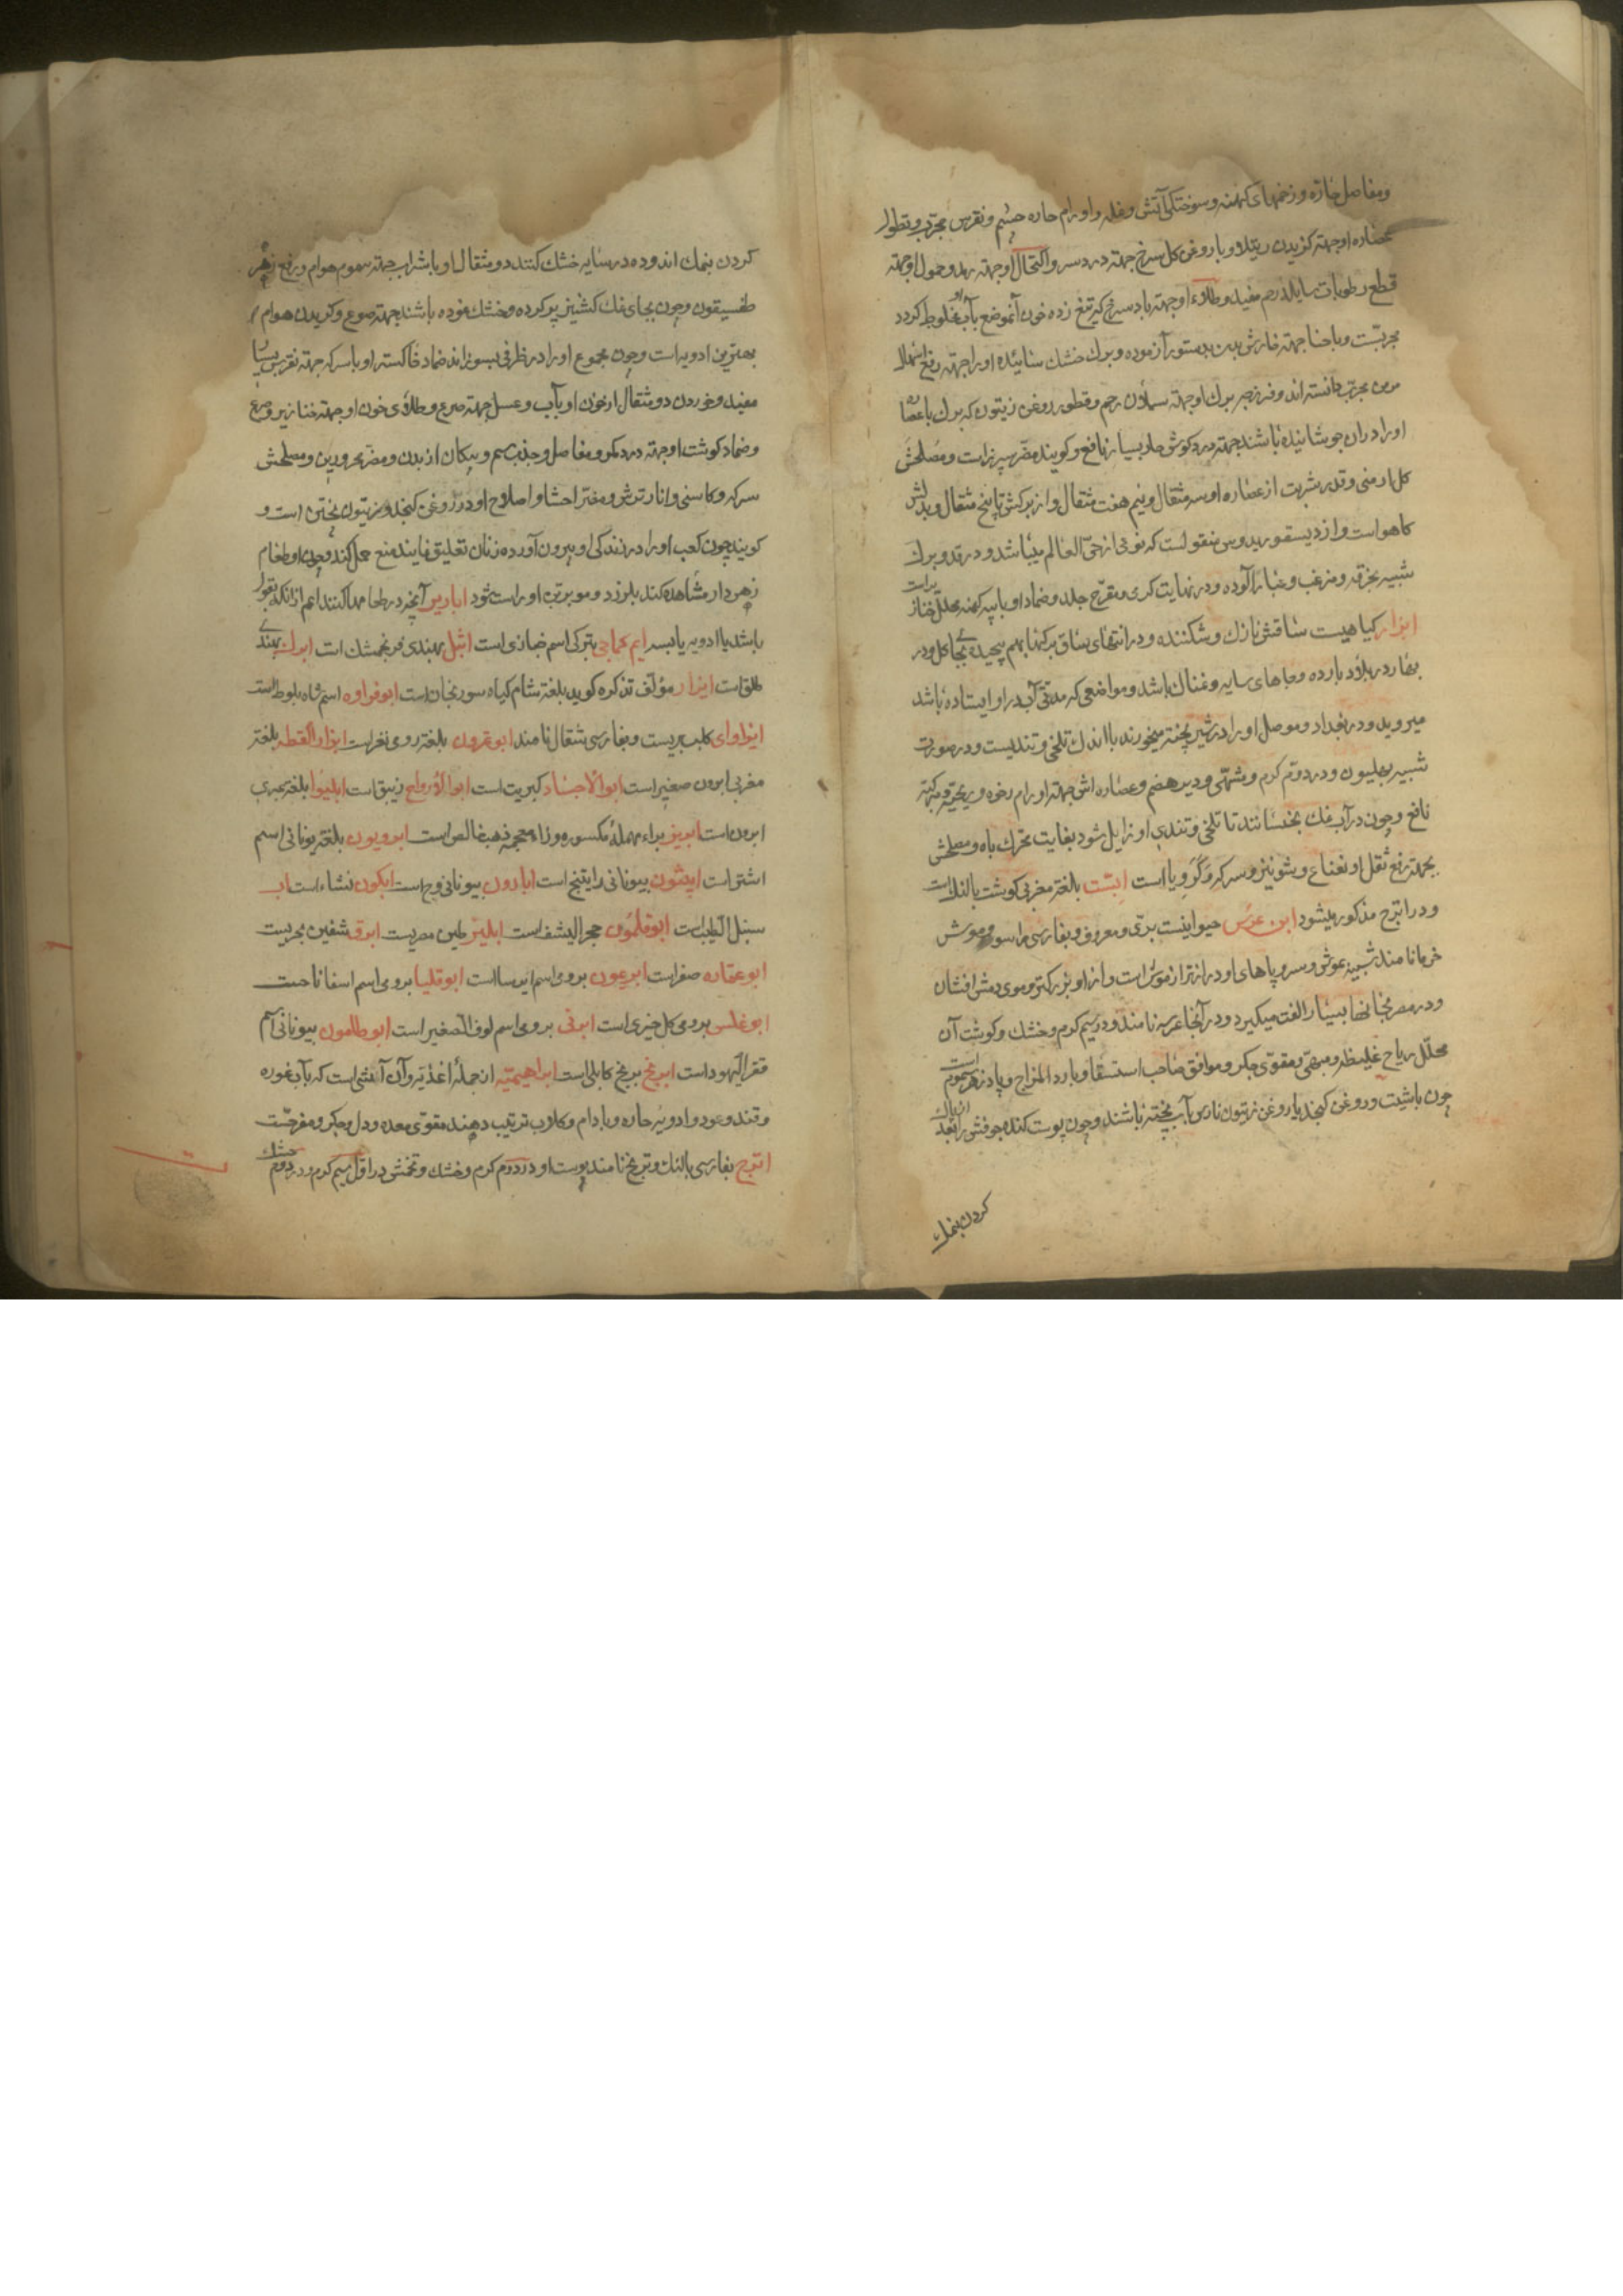 ومفاصل حاره و زخمهای کهنه و سوختکی آتش و نمله و اورام حاره چشم و نقرس مجرّب و قطور
عصاره او جهة کزیدن رتیلا و با روغن کل سرخ جهة درد سر و اکتحال او جهة رمد و حمول او جهة
قطع رطوبات سایله رحم مفید و طلاء او جهة باد سرخ که تیغ زده خون آنموضع بآب او مخلوط کردد
مجربست و با حنا جهة خارش بدن بدستور آزموده و برك خشك سائیده او را جهة رفع اسهال
مزمن مجرّب دانسته اند و فرزجه برك او جهة سیلان رحم و قطور روغن زیتون که برك با عصاره
او را در ان جوشانیده باشند جهة درد کوش حار بسیار نافع و کویند مضر سپرز است و مصلحش
کل ارمنی و قدر شربت از عصاره او سه مثقال و نیم هفت مثقال و از برکش تا پنج مثقال و بدلش
کاهو است و از دیسقوریدوس منقولست که نوعی از حیّ العالم میباشد و در قد و برك
شبیه بخرفه و مزغب و غبار آلوده و در نهایت کرمی و مقرّح جلد و ضماد او با پیه کهنه محلل خنازیر است
ابزار کیاهیست ساقش نازك و شکننده و در انتهای ساق برکها بهم پیچیده بجای کل و در
بهار در بلاد بارده و جاهای سایه و نمناك باشد و مواضعی که مدتی آب در او ایستاده باشد
میروید و در بغداد و موصل او را در شیر پخته میخورند با اندك تلخی و تندیست و در صورت
شبیه بهلیون و در دوم کرم و مشهّی و دیر هضم و عصاره اش جهة اورام رخوه و ریحیّه و مرکبه
نافع و چون در آب نمك بخیسانند تا تلخی و تندی او زایل شود بغایت محرّك باه و مصلحش
بجهة رفع ثقل او نعناع و شونیز و سرکه و کرویا است ابست بلغة مغربی کوشت بالنك است
و در اترج مذکور میشود ابن عرس حیوانیست برّی و معروف و بفارسی راسو و موش
خرما نامند شبیه بموش و سر و پاهای او درازتر از موش است و از او بزرکتر و موی دمش افشان
و در مصر بخانها بسیار الفت میکیرد و در آنجا عرسه نامند و در سیم کرم و خشك و کوشت آن
محلّل ریاح غلیظه و مبهّی و مقوّی جکر و موافق صاحب استسقا و بارد المزاج و پادزهر سموم است
چون با شبت و روغن کنجد یا روغن زیتون نارس بآب پخته باشند و چون پوست کنده جوفش را بعد از پاك
کردن بنمك
کردن بنمك اندوده در سایه خشك کنند دو مثقال او با شراب جهة سموم هوام و رفع زهر
طفسیقون و چون بجای نمك کشنیز پر کرده و خشك نموده باشند جهة صرع و کزیدن هوام
بهترین ادویه است و چون مجموع او را در ظرفی بسوزانند ضماد خاکستر او با سرکه جهة نقرس بسیار
مفید و خوردن دو مثقال از خون او بآب و عسل جهة صرع و طلاء خون او جهة خنازیر و صرع
و ضماد کوشت او جهة درد کمر و مفاصل و جذب سم و پیکان از بدن و مضر محرورین و مصلحش
سرکه و کاسنی و انار ترش و مضر احشا و اصلاح او در روغن کنجد و زیتون پختن است و
کویند چون کعب او را در زندکی او بیرون آورده زنان تعلیق نمایند منع حمل کند و چون او طعام
زهردار مشاهده کند بلرزد و موی بر تن او راست شود ابازیر آنچه در طعامها کنند اعم از آنکه بقول
باشد یا ادویه یابسه ایم کماجی بترکی اسم خبازی است ابثل بهندی فرنجمشك است ابرك بهندی
طلق است ابزار مؤلف تذکره کوید بلغة شام کیاه سورنجان است ابوفراوه اسم شاه بلوط است
ابزاوای کلب بریست و بفارسی شقال نامند ابوقرون بلغة رومی نغر است ابزار القطه بلغة
مغربی ابرون صغیر است ابو الاجساد کبریت است ابو الارواح زیبق است ابلیوا بلغة بحری
ابرون است ابریز براء مهمله مکسوره و زاء معجمه ذهب خالص است ابرویون بلغة یونانی اسم
اشتر است ابیثون بیونانی راتینج است ابارون بیونانی وج است ابکون نشاء است اب
سنبل الطیب است ابوقلمون حجر الیشف است ابلیز طین مصریست ابرق شفنین بحریست
ابوعقاره صفر است ابریعون برومی اسم ایرسا است ابوقلیا برومی اسم اسفاناخ است
ابوغلس برومی کل خیری است ابرقی برومی اسم لوف الصغیر است ابوطامون بیونانی اسم
قفر الیهود است ابرنج برنج کابلی است ابراهیمیّه از جملهٔ اغذیه و آن آتشی است که بآب غوره
و قند و عود و ادویه حاره و بادام و کلاب ترتیب دهند مقوّی معده و دل و جکر و مفرحست
اترج بفارسی بالنك و ترنج نامند پوست او در دوم کرم و خشك و تخمش در اول سیم کرم و در دوم خشك